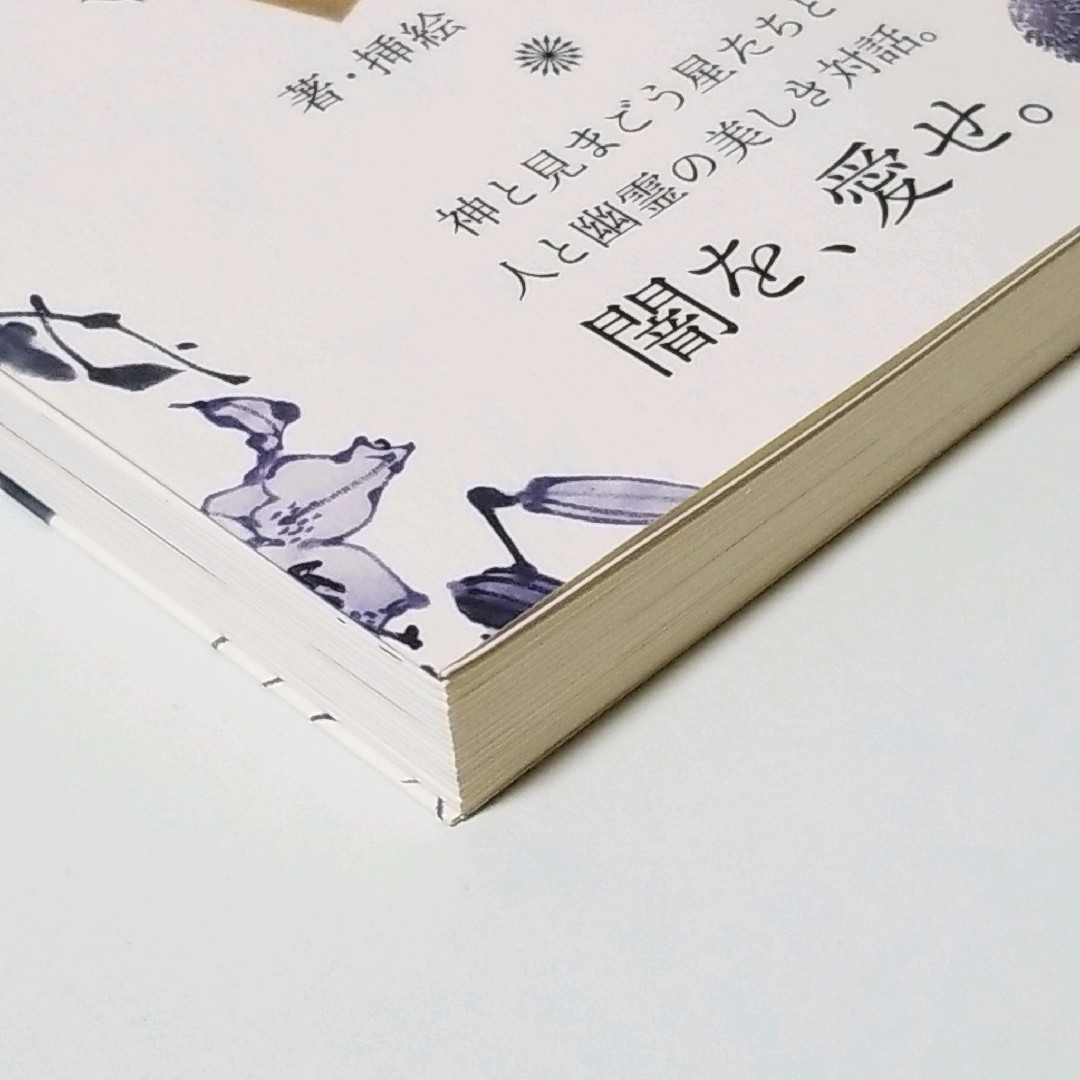 著・挿絵
神と見まごう星たちと
人と幽霊の美しき対話。
闇を、愛せ。